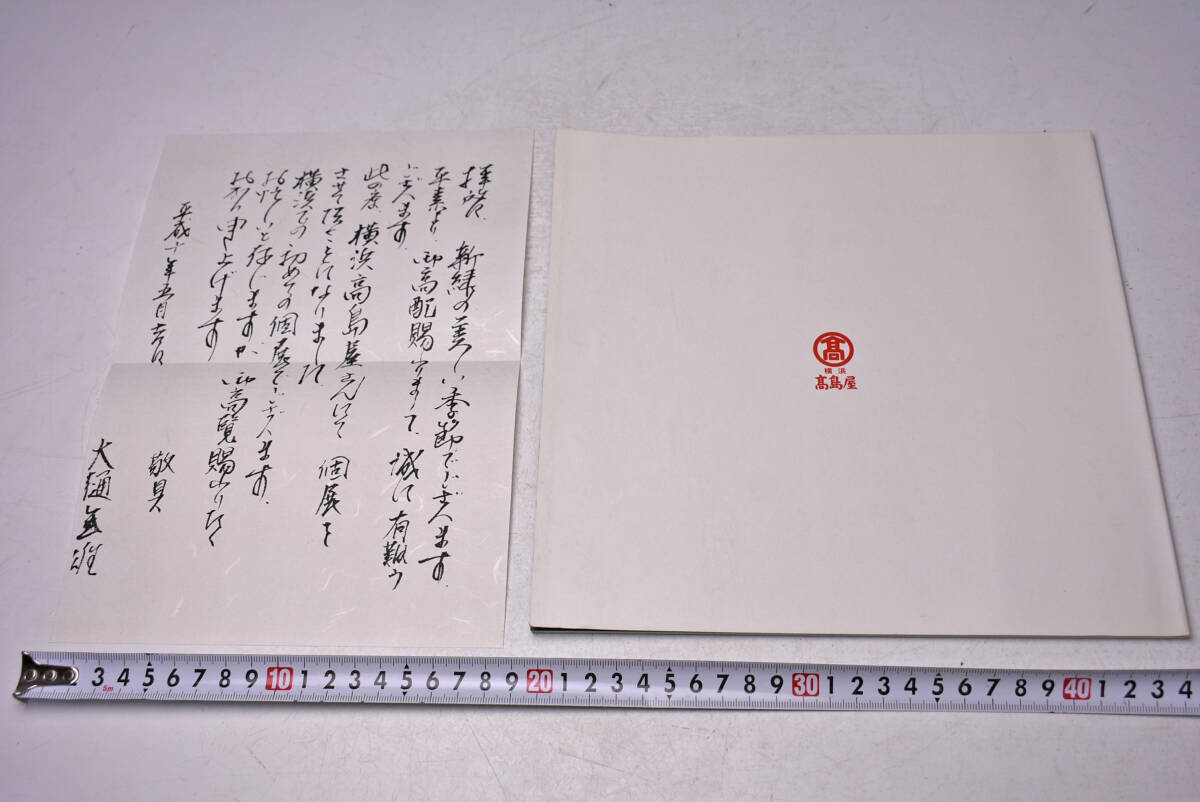 拝啓、新緑の美しい季節でございます。
平素より、御高配賜りまして、誠に有難う
ございます。
此の度、横浜高島屋さんにて個展を
させて頂くことになりました。
横浜での初めての個展でございます。
お忙しいと存じますが、御高覧賜りたく
お願い申し上げます
敬具
平成十年五月吉日
大樋年雄
横浜
髙島屋
3 4 5 6 7 8 9 10 1 2 3 4 5 6 7 8 9 20 1 2 3 4 5 6 7 8 9 30 1 2 3 4 5 6 7 8 9 40 1 2 3 4
5m